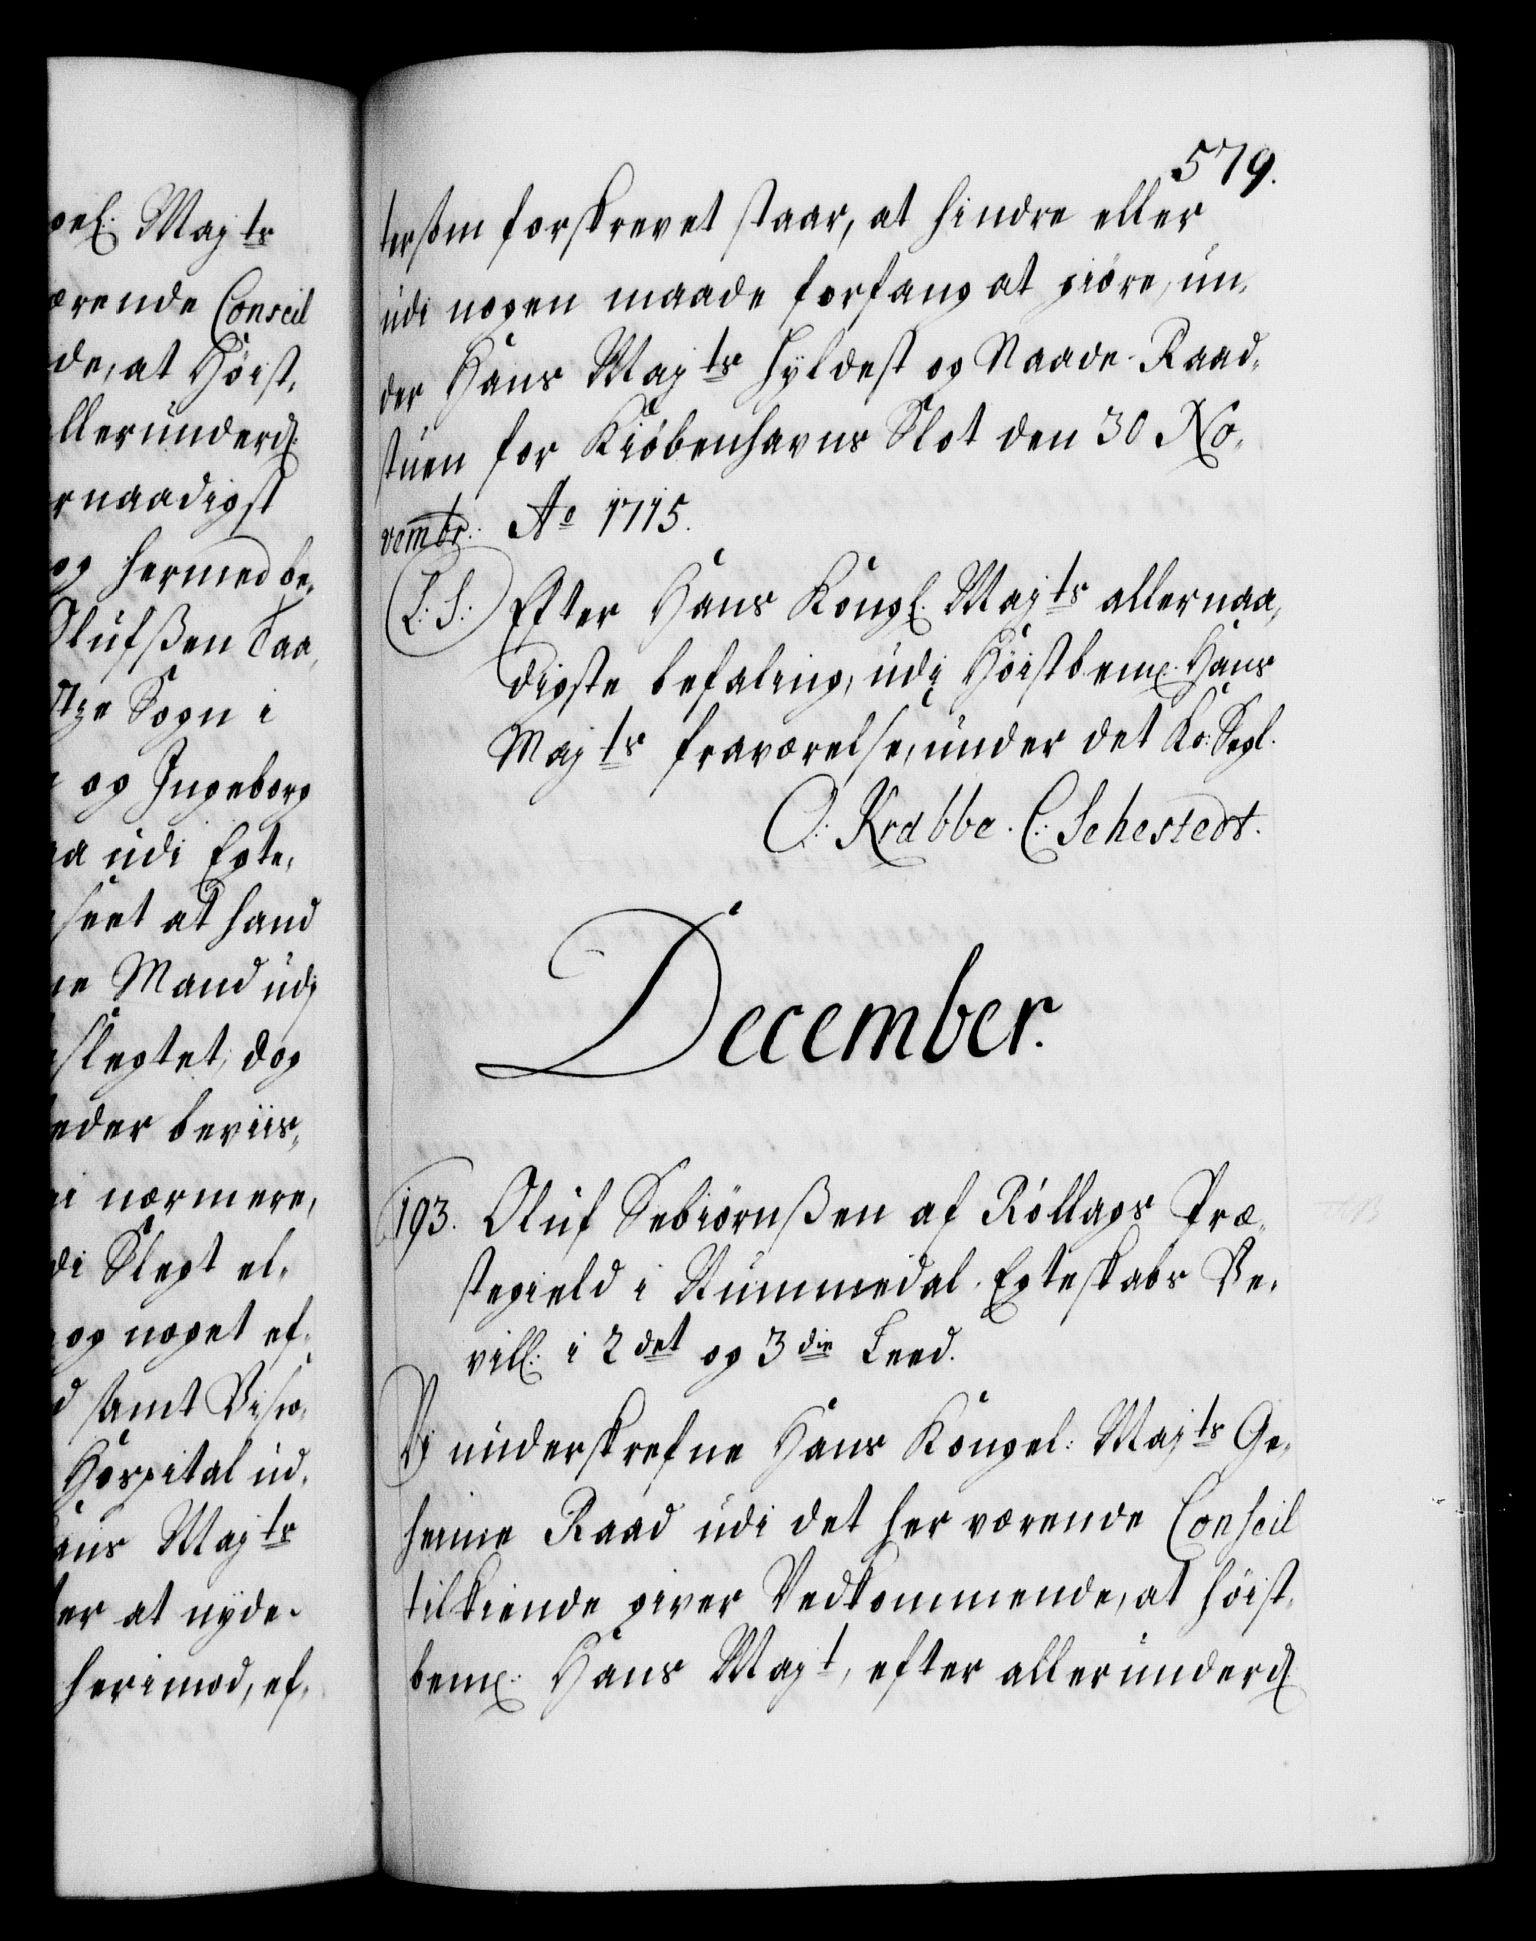 gel. Majts
ærende Conseil
de, at Höist-
llerunderd.
rnaadigst
og hermed be-
Olufsßen Taa-
Sogn i
og Ingeborg
udi Egte-
seet at hand
Mand udj
slegtet, dog
eder beviis-
nærmere,
di Slegt el-
og noget ef-
samt
Hospital ud-
ans Majts
er at nyde.
herimod, ef-
579.
tersom forskrevet staar, at hindre eller
udi nogen maade forfang at giöre, un-
der Hans Majts Hyldest og Naade. Raad-
stuen for Kiöbenhavns Slot den 30 No-
vembr: Ao 1715.
(L. S.) Efter Hans Kongl. Majts allernaa-
digste befaling, udj Höistbem. Hans
Majts fraværelse, under det Ko: Segl.
O: Krabbe. C: Sehestedt.
December.
193. Oluf Sebiörnßen af Róllags Præ-
stegield i Nummedal. Egteskabs Be-
vill. i 2det og 3die Leed.
Vj underskrefne Hans Kongel: Majts Ge-
heime Raad udi det her værende Conseil
tilkiende giver Vedkommende, at höist-
bem. Hans Mayt, efter allerunderd.